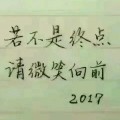 若不是终点
请微笑向前
2017